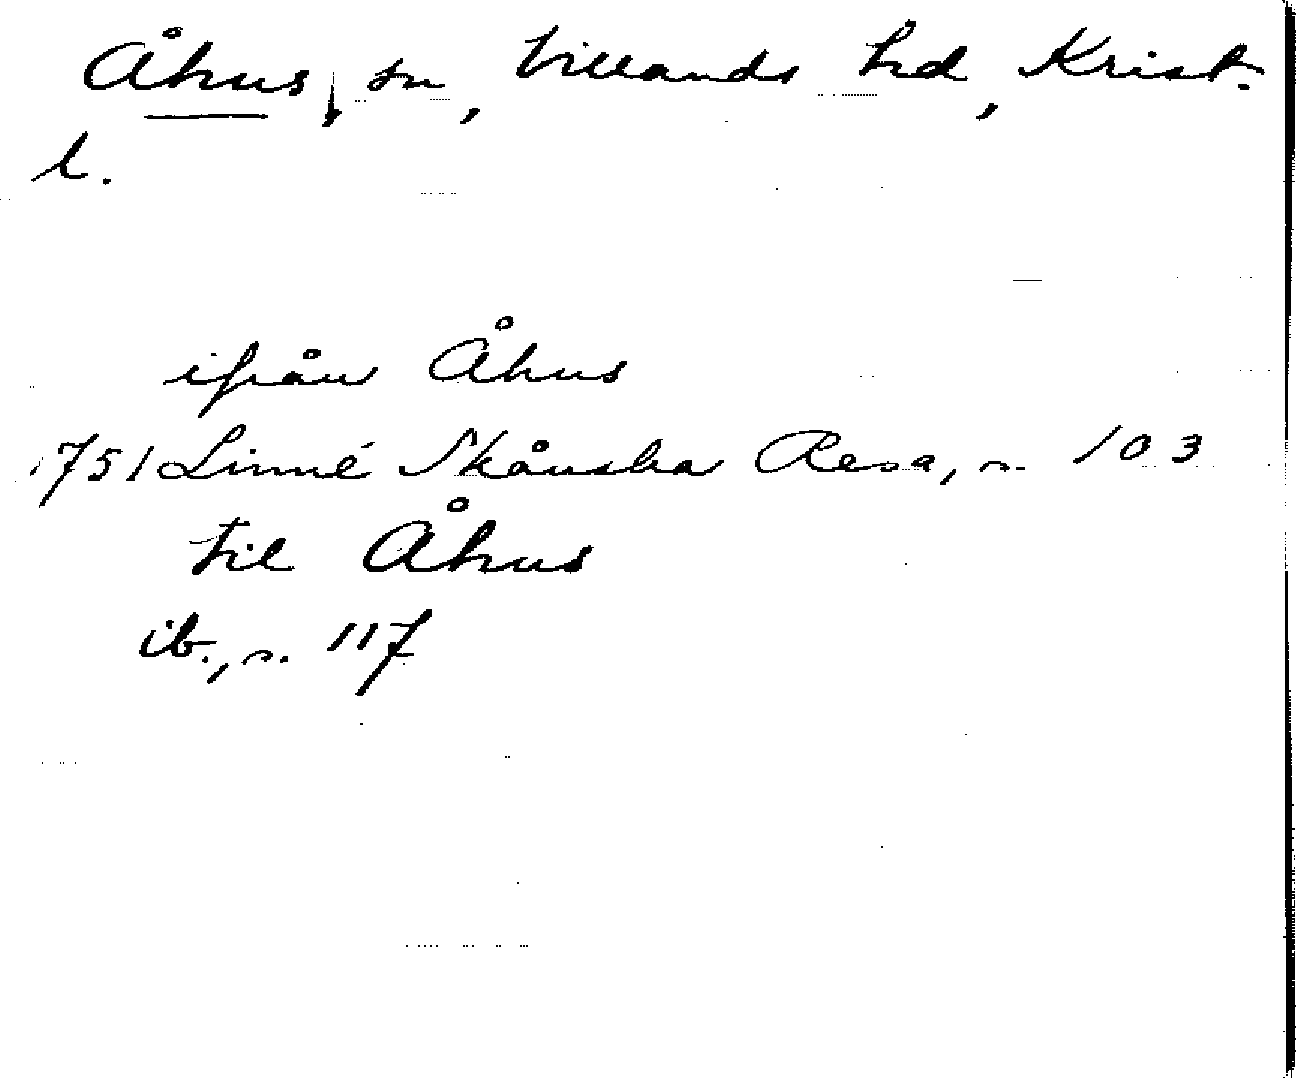 Åhus, sn, Villands hd, Krist.
l.
ifrån Åhus
1751 Linné Skånska Resa, s. 103
til Åhus
ib., s. 117